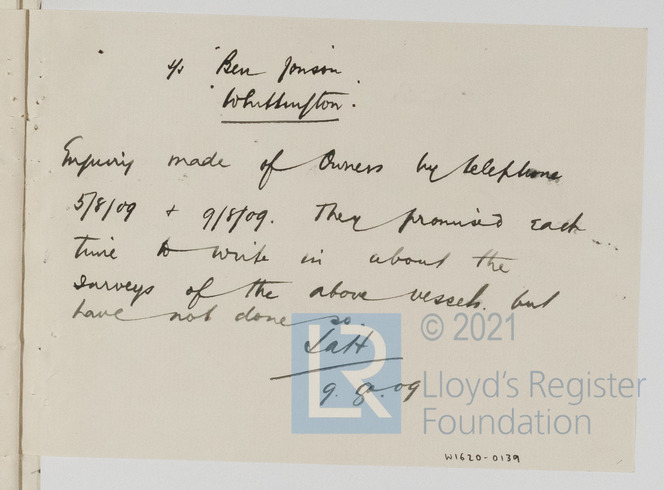 s/s "Ben Jonson"
"Whittington".
Enquiry made of Owners by telephone
5/8/09 + 9/8/09. They promised each
time to write in about the
surveys of the above vessels. but
have not done so.
9.8.09
LR
© 2021
Lloyd's Register
Foundation
W1620-0139